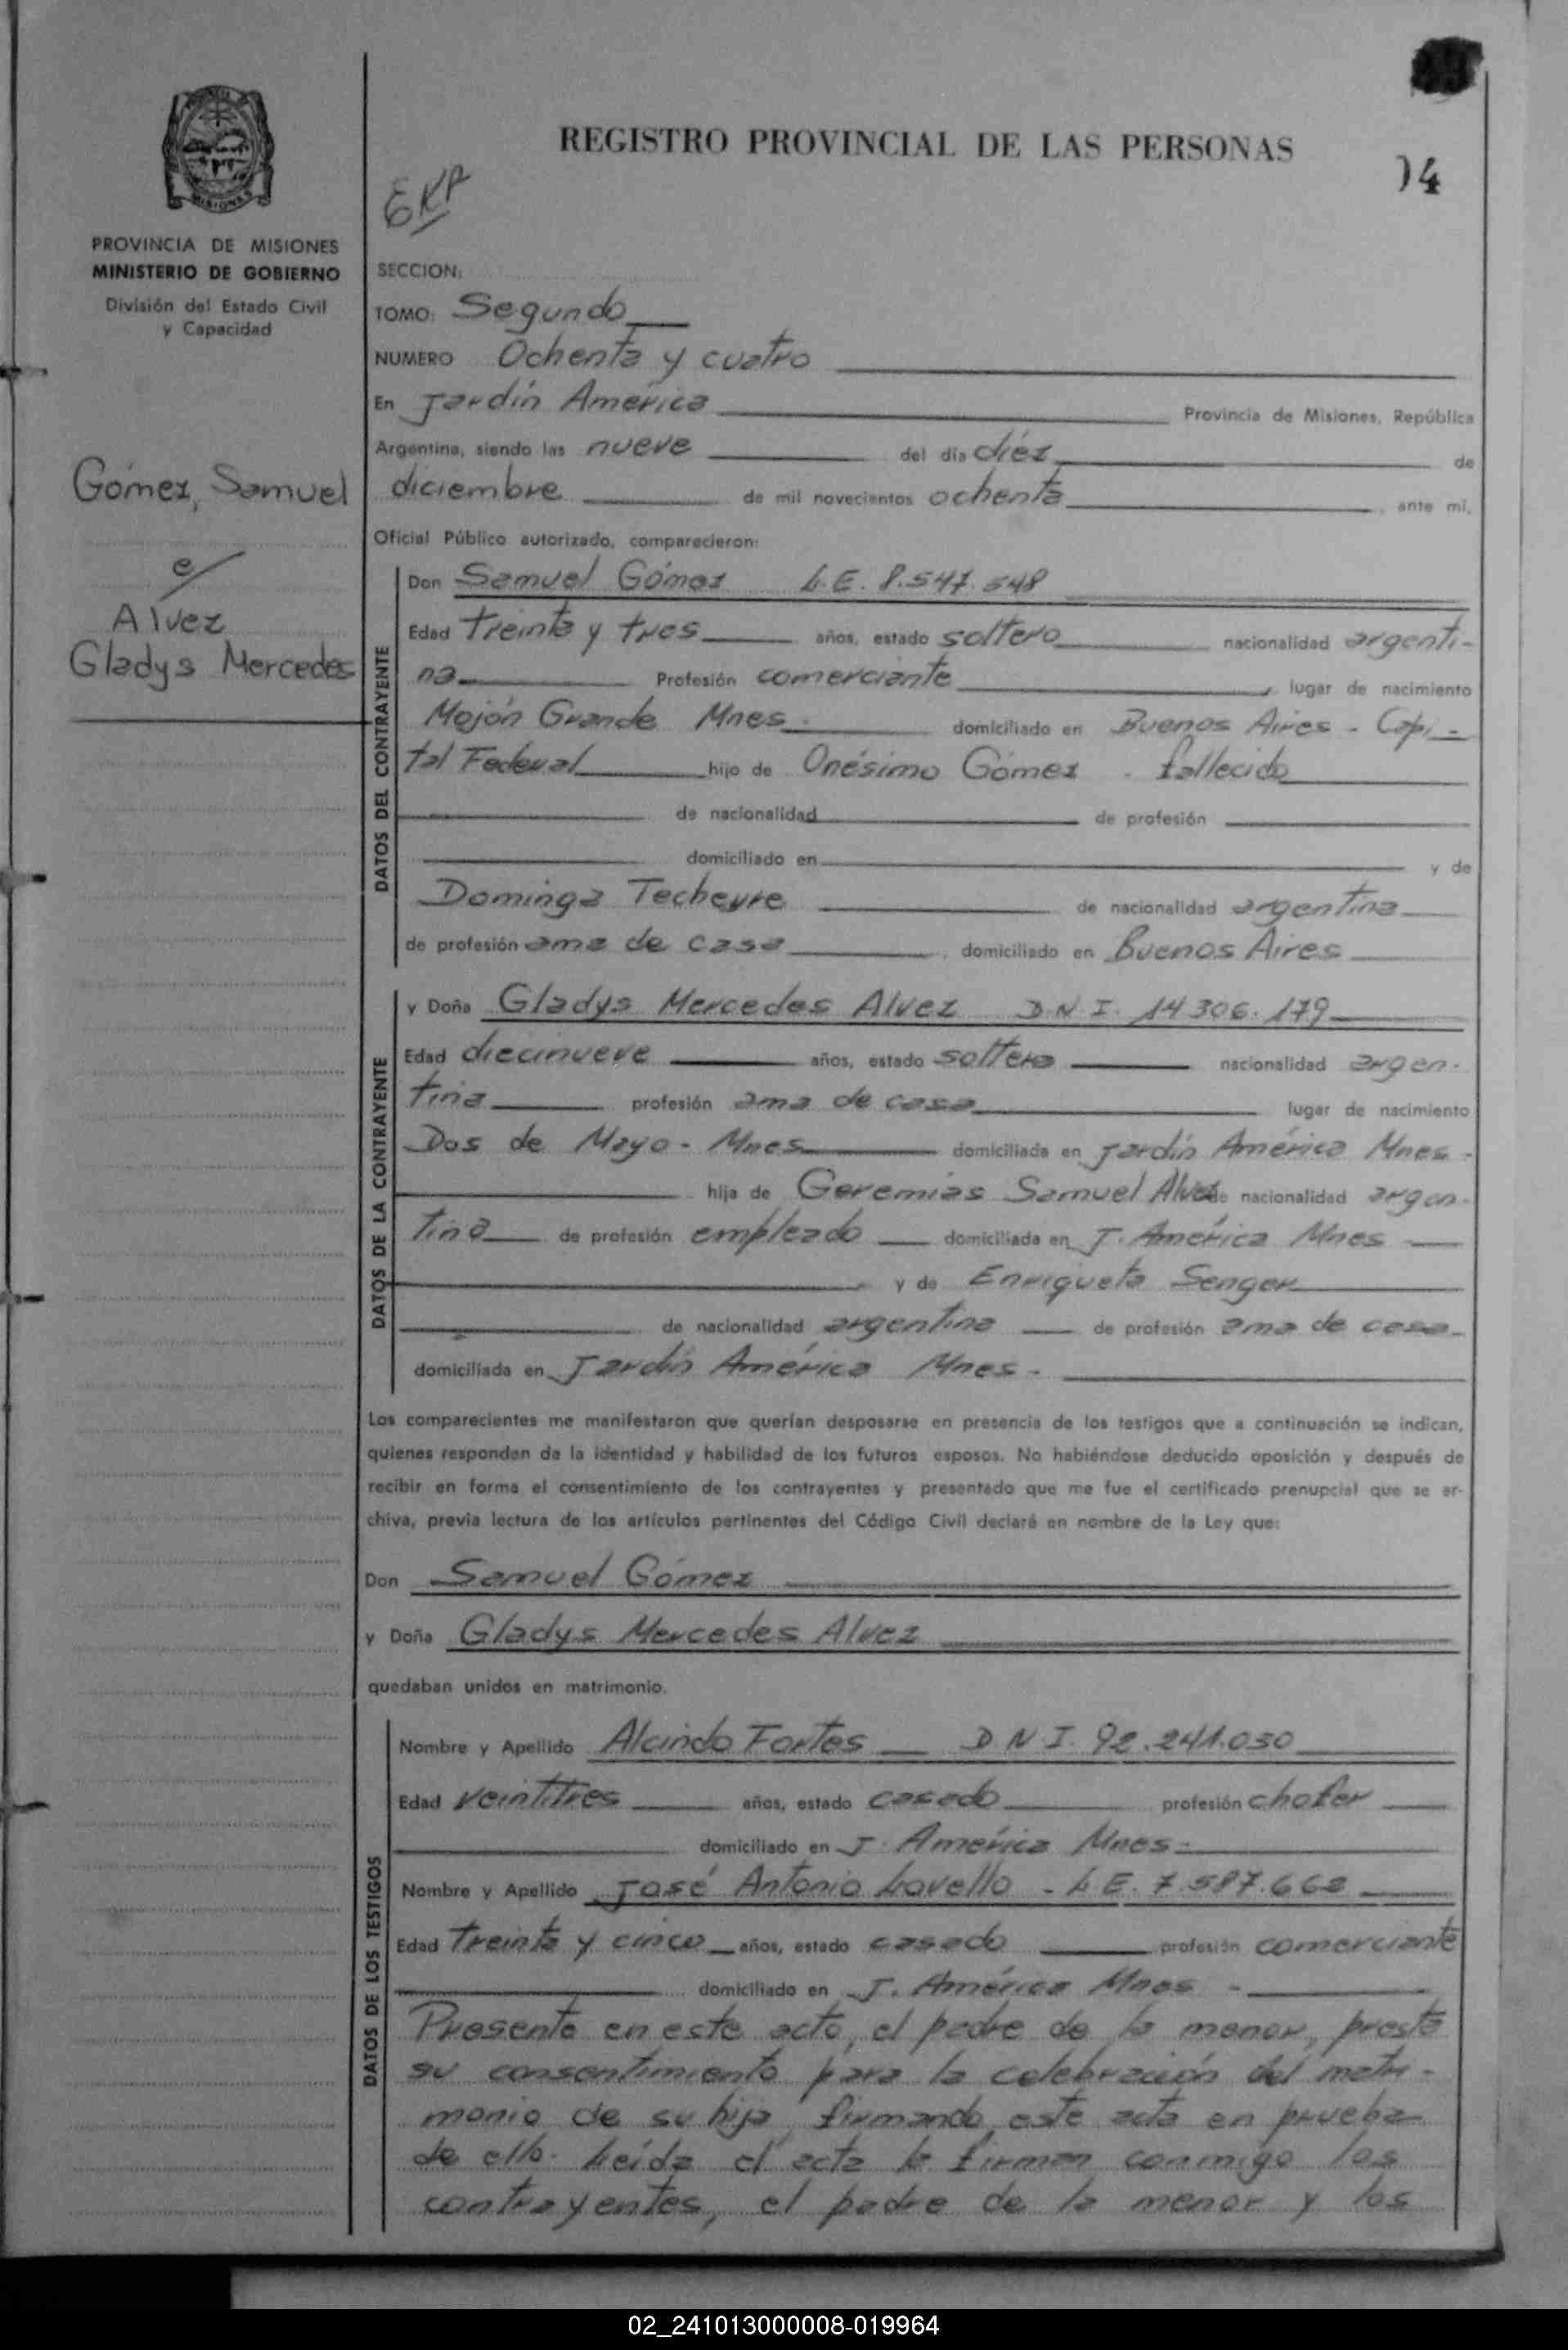 REGISTRO PROVINCIAL DE LAS PERSONAS
)4
MISIONES
PROVINCIA DE MISIONES
MINISTERIO DE GOBIERNO
División del Estado Civil
y Capacidad
Gómez, Samuel
c/
Alvez
Gladys Mercedes
SECCION:
TOMO: Segundo
NUMERO Ochenta y cuatro
En Jardín América Provincia de Misiones, República
Argentina, siendo las nueve del día diéz de
diciembre de mil novecientos ochenta, ante mi,
Oficial Público autorizado, comparecieron:
DATOS DEL CONTRAYENTE
Don Samuel Gómez L.E. 8.547.548
Edad treinta y tres años, estado soltero nacionalidad argenti-
na Profesión comerciante, lugar de nacimiento
Mojón Grande Mnes. domiciliado en Buenos Aires - Capi-
tal Federal hijo de Onésimo Gómez - fallecido
de nacionalidad de profesión
domiciliado en y de
Dominga Techeyre de nacionalidad argentina
de profesión ama de casa, domiciliado en Buenos Aires
DATOS DE LA CONTRAYENTE
y Doña Gladys Mercedes Alvez D.N.I. 14.306.179
Edad diecinueve años, estado soltera nacionalidad argen-
tina profesión ama de casa lugar de nacimiento
Dos de Mayo - Mnes domiciliada en Jardín América Mnes -
hija de Geremías Samuel Alvez de nacionalidad argen-
tina de profesión empleado domiciliada en J. América Mnes
y de Enriqueta Senger
de nacionalidad argentina de profesión ama de casa
domiciliada en Jardín América Mnes -
Los comparecientes me manifestaron que querían desposarse en presencia de los testigos que a continuación se indican,
quienes responden de la identidad y habilidad de los futuros esposos. No habiéndose deducido oposición y después de
recibir en forma el consentimiento de los contrayentes y presentado que me fue el certificado prenupcial que se ar-
chiva, previa lectura de los artículos pertinentes del Código Civil declaré en nombre de la Ley que:
Don Samuel Gómez
y Doña Gladys Mercedes Alvez
quedaban unidos en matrimonio.
DATOS DE LOS TESTIGOS
Nombre y Apellido Alcindo Fortes D.N.I. 92.241.030
Edad veintitres años, estado casado profesión chofer
domiciliado en J. América Mnes-
Nombre y Apellido José Antonio Lovello - L.E. 7.587.662
Edad treinta y cinco años, estado casado profesión comerciante
domiciliado en J. América Mnes -
Presente en este acto, el padre de la menor, presta
su consentimiento para la celebración del matri-
monio de su hija, firmando este acta en prueba
de ello. Leída el acta la firman conmigo los
contrayentes, el padre de la menor y los
02_241013000008-019964